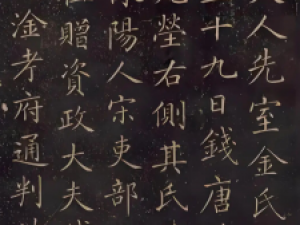 人先室金氏
十九日錢唐
塋右側其氏
陽人宋吏部
贈資政大夫
淦孝府通判